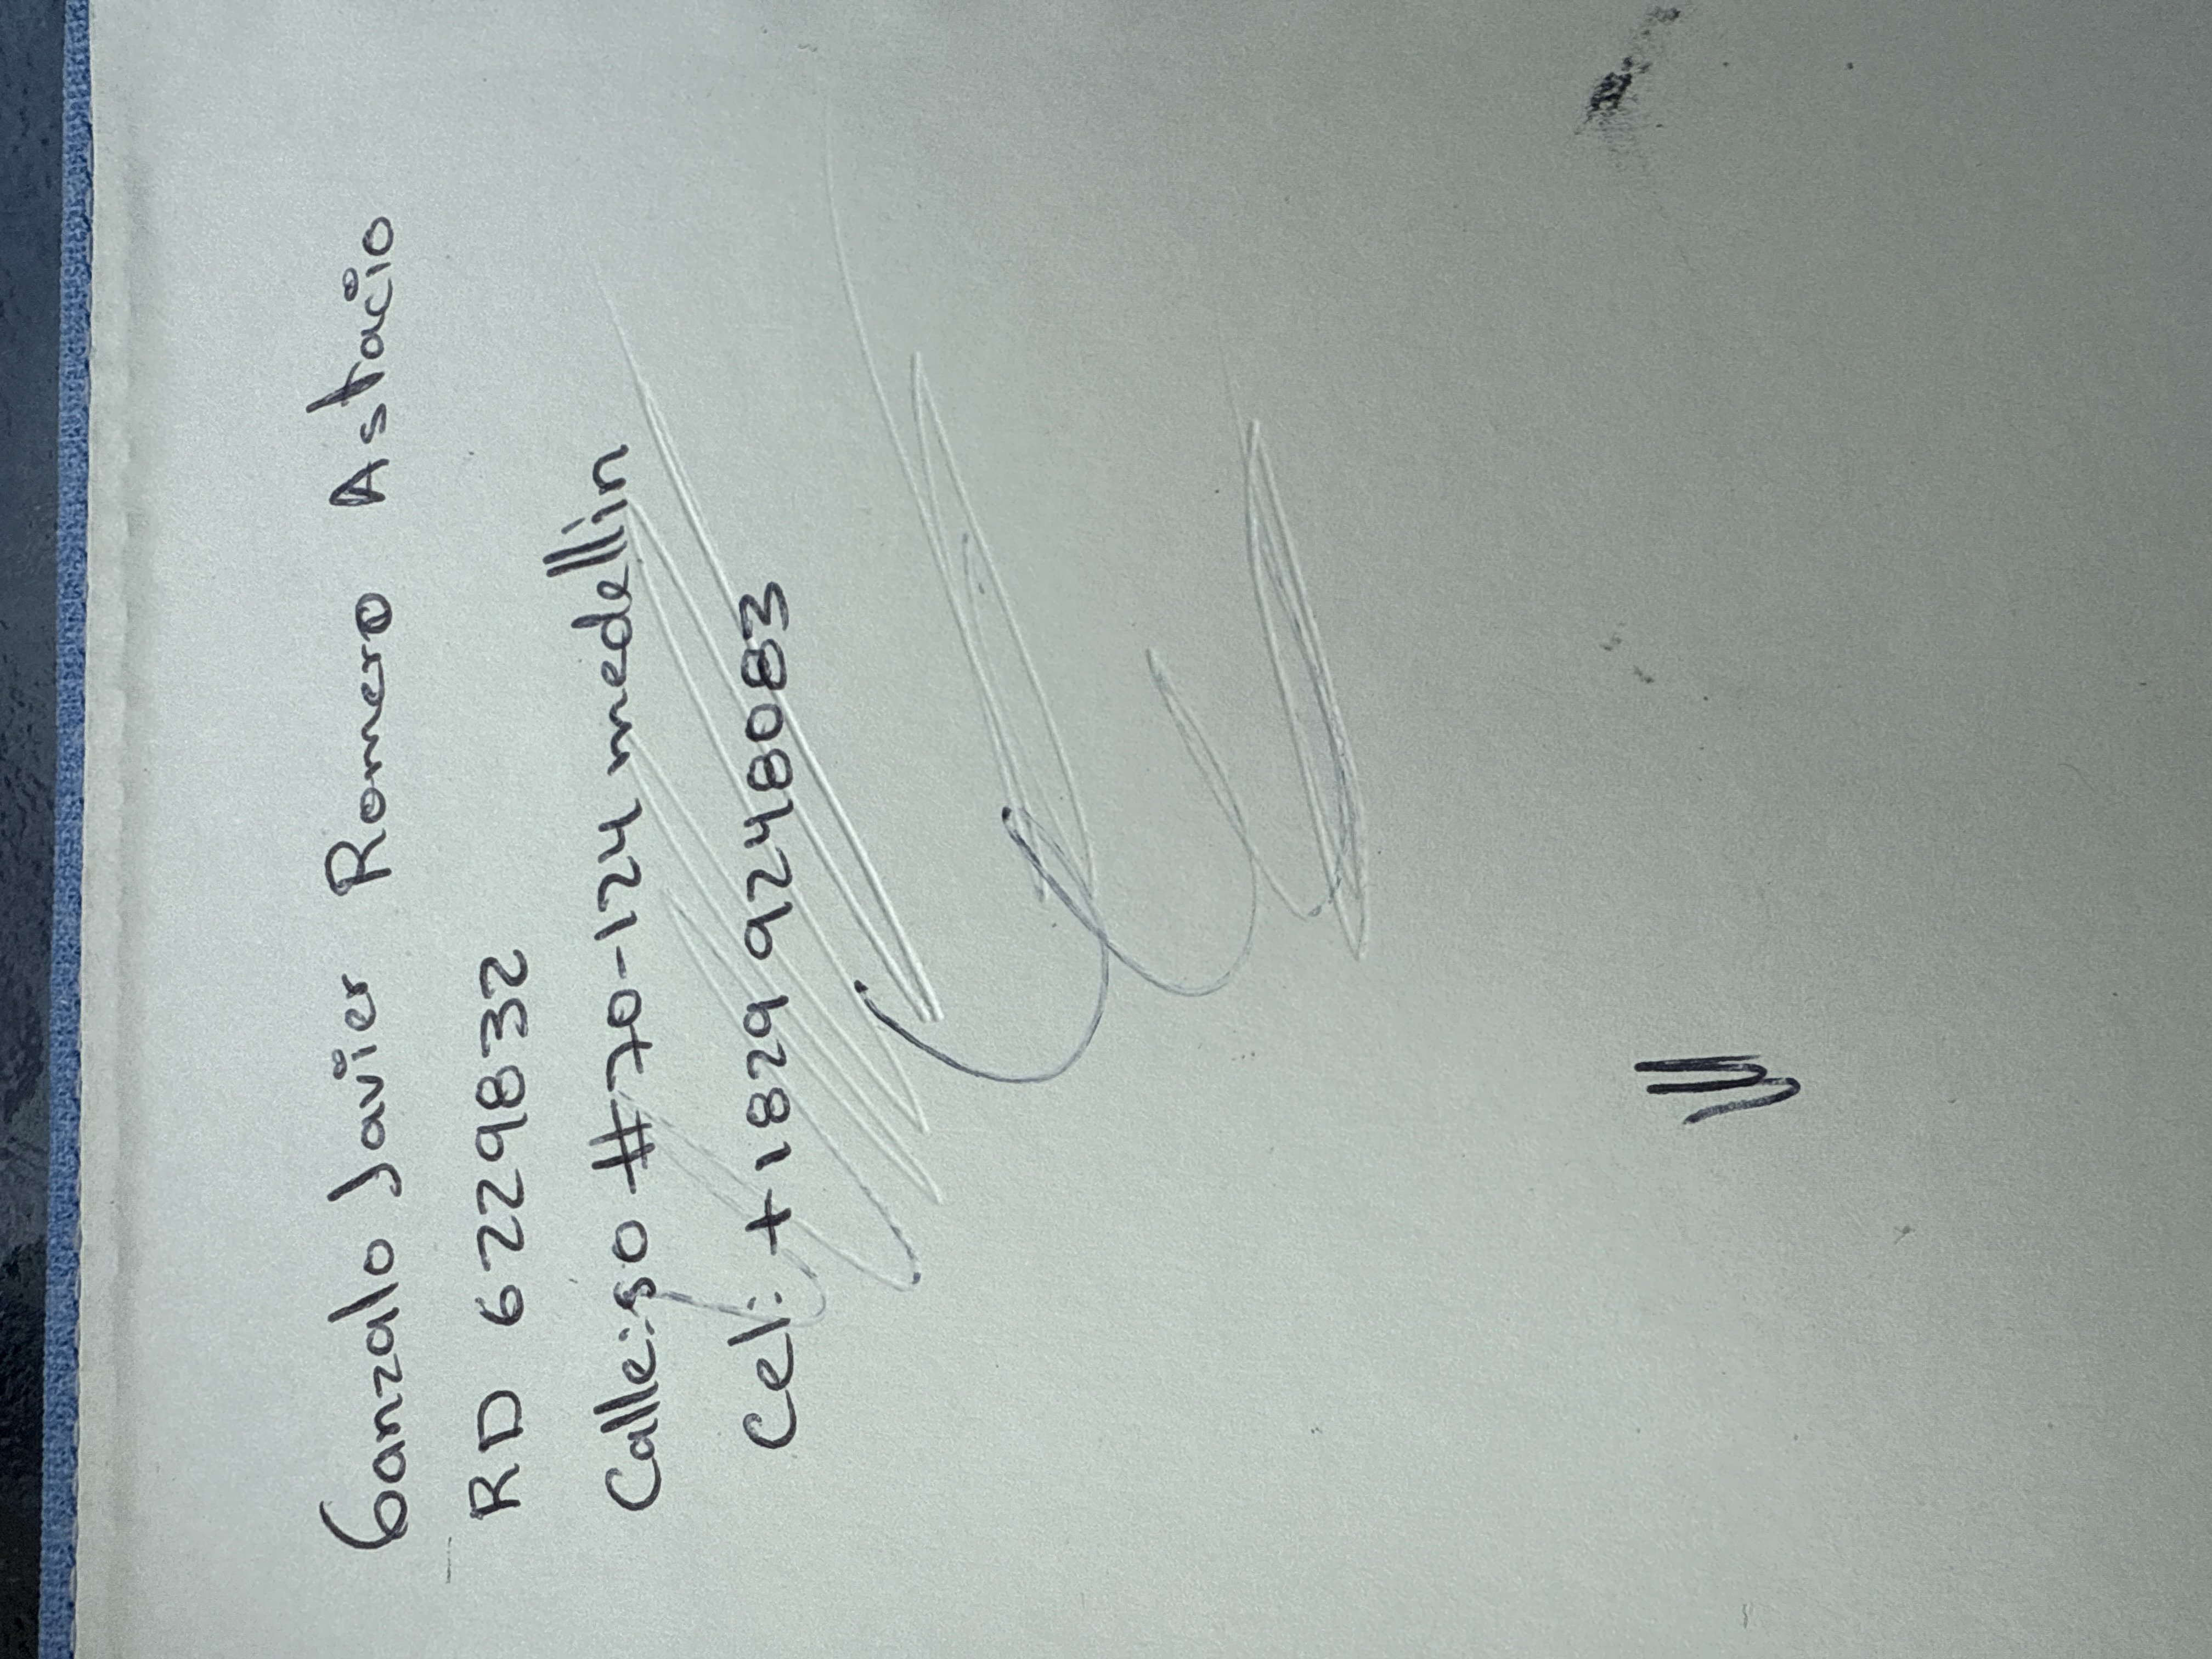 Gonzalo Javier Romero Astacio
RD 6229832
Calle:50 #70-124 medellin
Cel: +1829 9248083